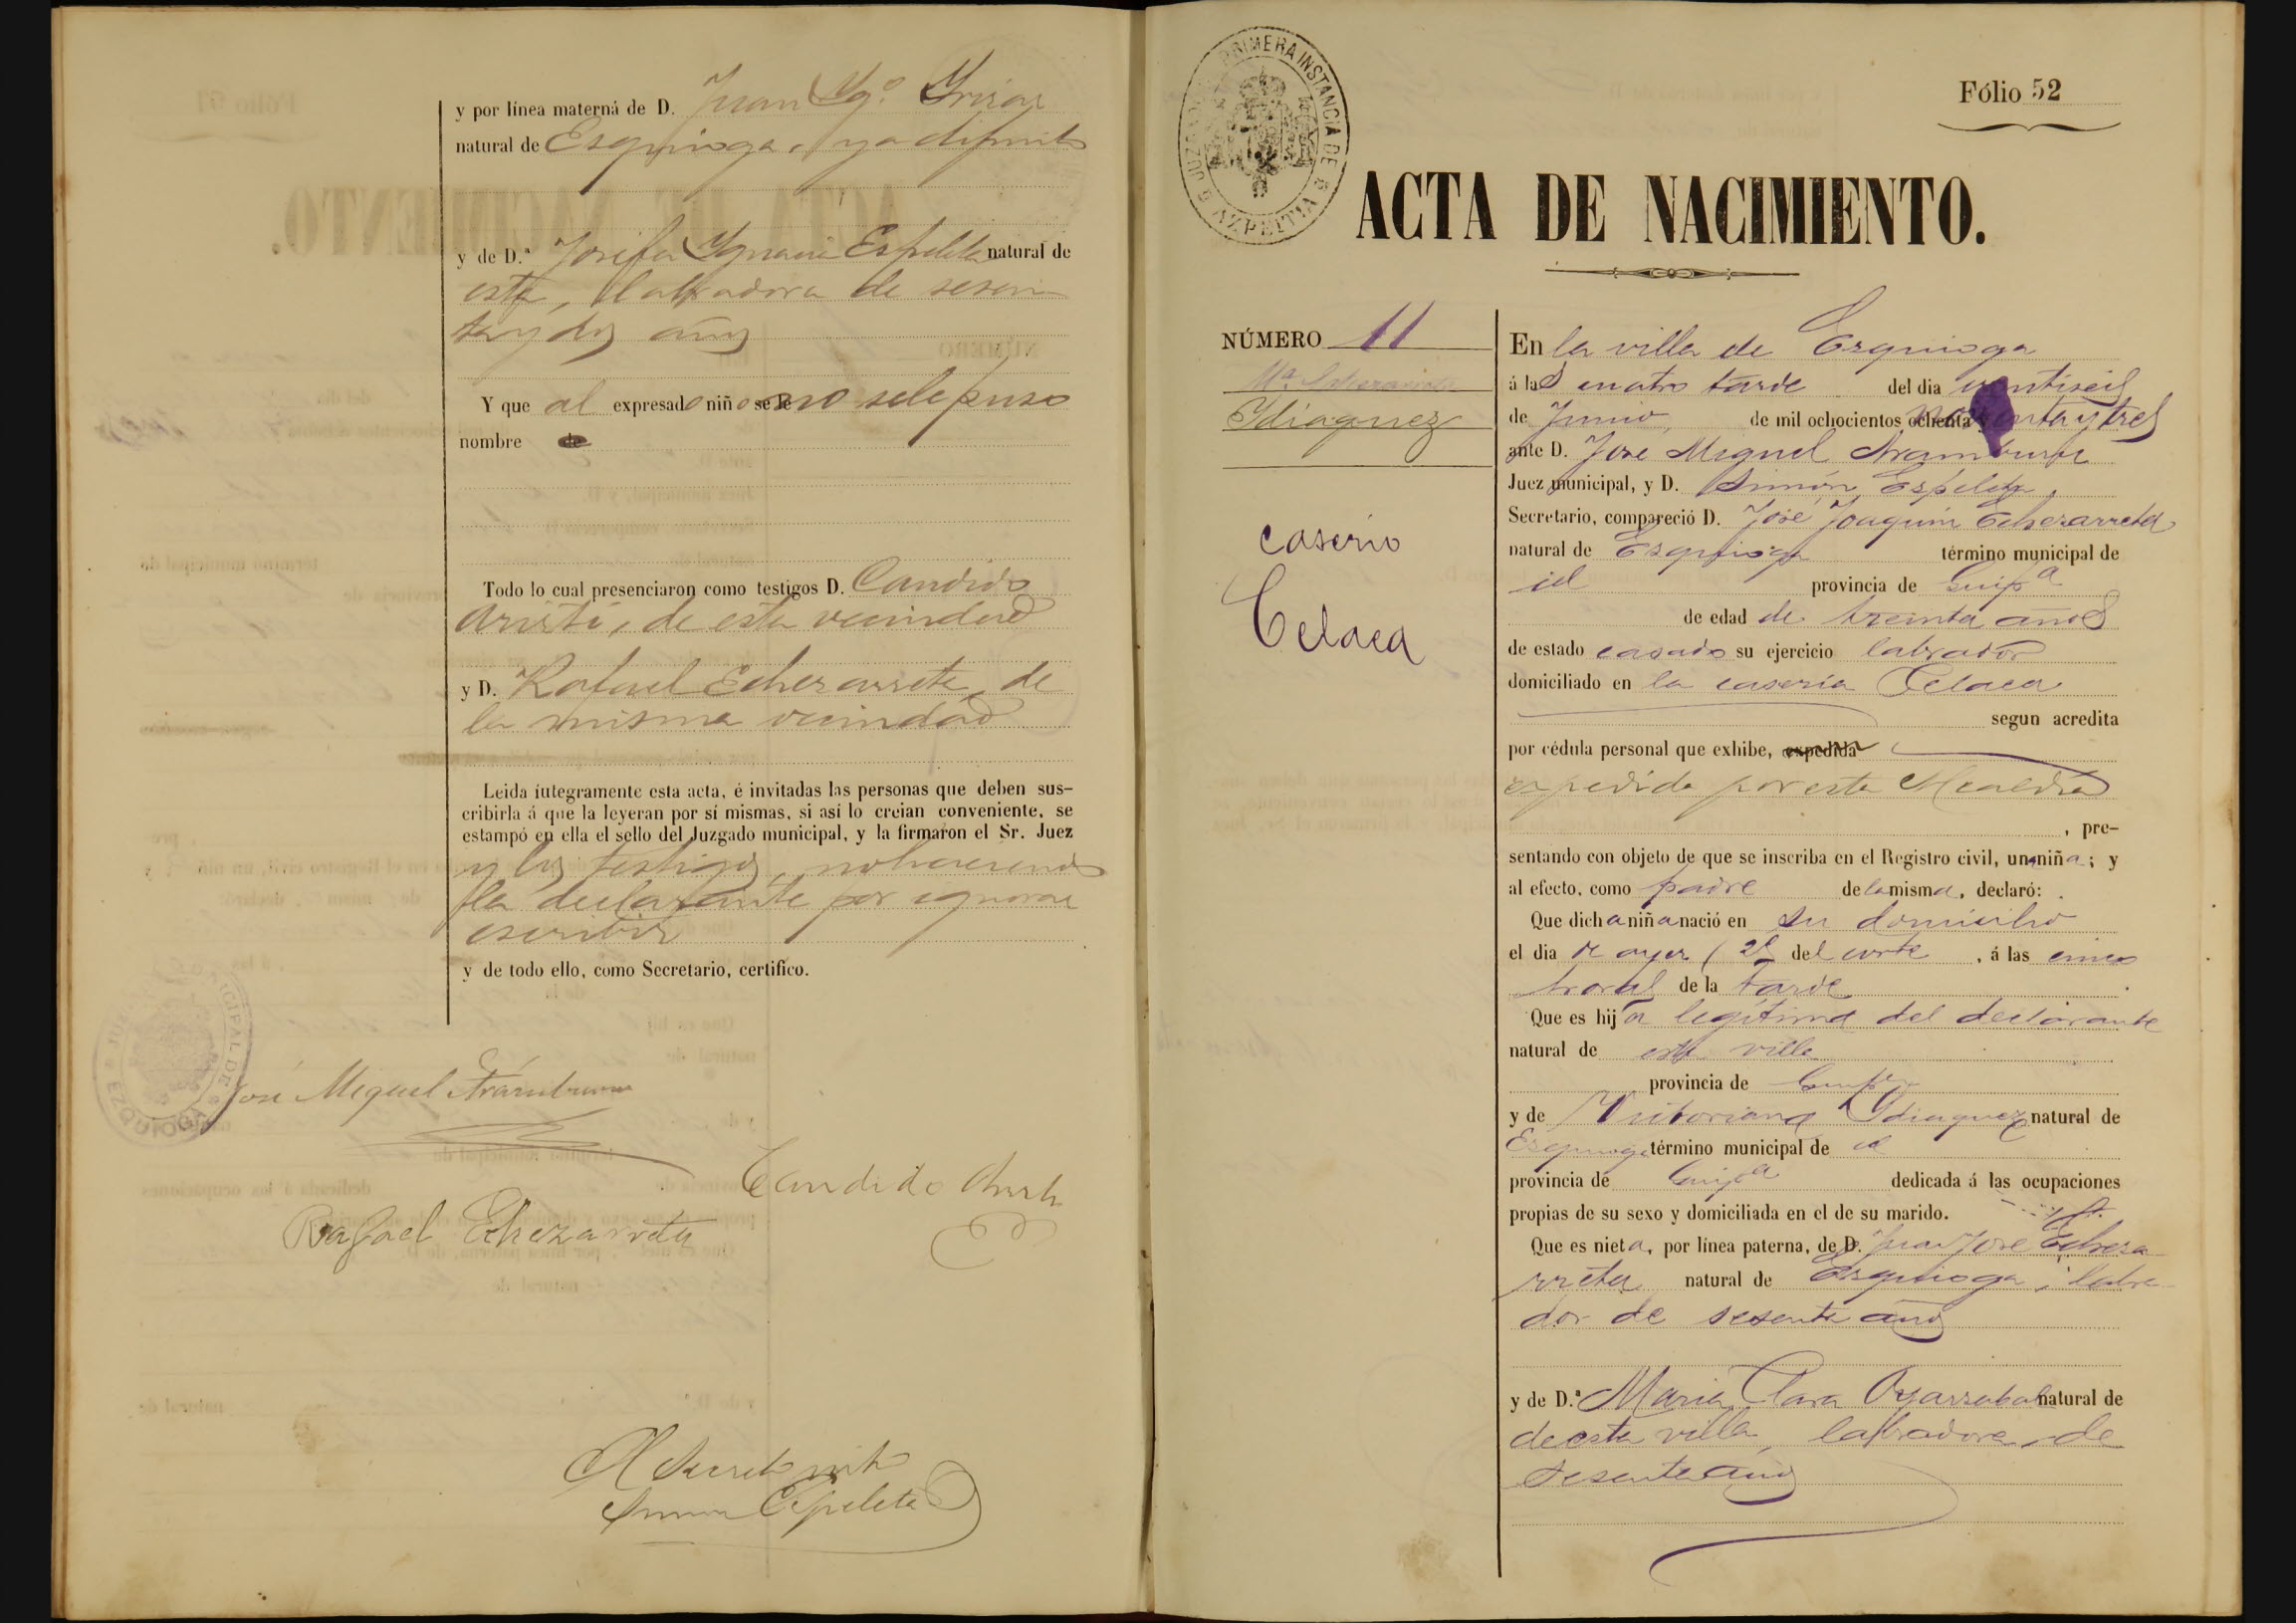 y por línea materná de D. Juan Ygº. Yrizar
natural de Esquioga, ya difunto
y de D.ª Josefa Ygnacia Espeleta natural de
esta, labradora de sesen
ta y dos años
Y que al expresado niño se le no se le puso
nombre de
Todo lo cual presenciaron como testigos D. Candido
Aristi, de esta vecindad
y D. Rafael Echezarreta, de
la misma vecindad
Leida íntegramente esta acta, é invitadas las personas que deben sus-
cribirla á que la leyeran por sí mismas, si así lo creian conveniente, se
estampó en ella el sello del Juzgado municipal, y la firmaron el Sr. Juez
y los testigos, no haciendo
la declarante por ignorar
escribir
y de todo ello, como Secretario, certifico.
José Miguel Aramburu
Candido Aristi
Rafael Echezarreta
El Secretario
Simon Espeleta
JUZGADO DE PRIMERA INSTANCIA DE AZPEITIA
Fólio 52
ACTA DE NACIMIENTO.
NÚMERO 11
Ydiaquez
caserio
Celaea
En la villa de Esquioga
á las cuatro tarde del dia veintiseis
de Junio, de mil ochocientos ochenta noventa y tres
ante D. José Miguel Aramburu
Juez municipal, y D. Simón Espeleta,
Secretario, compareció D. José Joaquin Echezarreta
natural de Esquioga término municipal de
id provincia de Guipª
de edad de treinta años
de estado casado su ejercicio labrador
domiciliado en la caseria Celaea
segun acredita
por cédula personal que exhibe, expedida
expedida por esta Alcaldia
, pre-
sentando con objeto de que se inscriba en el Registro civil, una niña; y
al efecto, como padre de la misma, declaró:
Que dicha niña nació en su domicilio
el dia de ayer (25 del corte, á las cinco
horas de la tarde
Que es hija legítima del declarante
natural de esta villa
provincia de Guipª
y de Vitoriana Ydiaquez natural de
Esquioga término municipal de id
provincia de Guipª dedicada á las ocupaciones
propias de su sexo y domiciliada en el de su marido.
Que es nieta, por línea paterna, de D. Juan José Echeza
rreta natural de Esquioga, labra
dor de sesenta años
y de D.ª Maria Clara Oyarzabal natural de
de esta villa, labradora, de
sesenta años